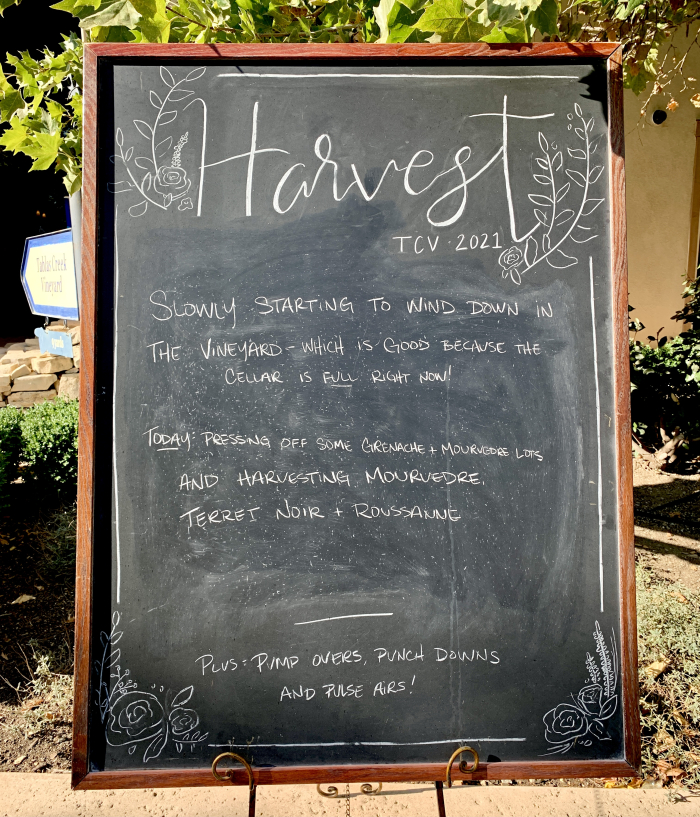 Harvest
TCV · 2021
SLOWLY STARTING TO WIND DOWN IN
THE VINEYARD - WHICH IS GOOD BECAUSE THE
CELLAR IS FULL RIGHT NOW!
TODAY: PRESSING OFF SOME GRENACHE + MOURVEDRE LOTS
AND HARVESTING MOURVEDRE,
TERRET NOIR + ROUSSANNE
PLUS: PUMP OVERS, PUNCH DOWNS
AND PULSE AIRS!
Tablas Creek
Vineyard